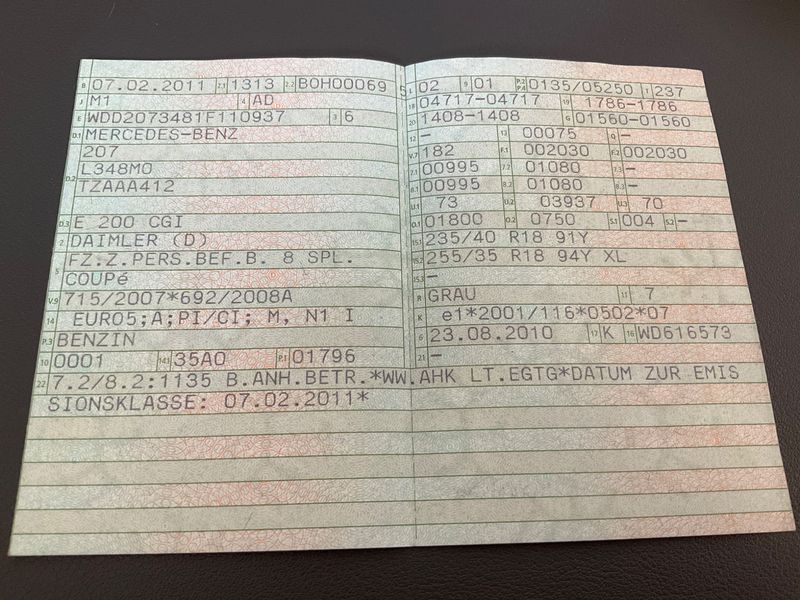 B 07.02.2011 2.1 1313 2.2 B0H00069 5
J M1 4 AD
E WDD2073481F110937 3 6
D.1 MERCEDES-BENZ
207
D.2 L348M0
TZAAA412
D.3 E 200 CGI
2 DAIMLER (D)
5 FZ.Z.PERS.BEF.B. 8 SPL.
COUPé
V.9 715/2007*692/2008A
14 EURO5;A;PI/CI; M, N1 I
P.3 BENZIN
10 0001 14.1 35A0 P.1 01796
L 02 9 01 P.2 P.4 0135/05250 T 237
18 04717-04717 19 1786-1786
20 1408-1408 G 01560-01560
12 – 13 00075 Q –
V.7 182 F.1 002030 F.2 002030
7.1 00995 7.2 01080 7.3 –
8.1 00995 8.2 01080 8.3 –
U.1 73 U.2 03937 U.3 70
O.1 01800 O.2 0750 S.1 004 S.2 –
15.1 235/40 R18 91Y
15.2 255/35 R18 94Y XL
15.3 –
R GRAU 11 7
K e1*2001/116*0502*07
6 23.08.2010 17 K 16 WD616573
21 –
22 7.2/8.2:1135 B.ANH.BETR.*WW.AHK LT.EGTG*DATUM ZUR EMIS
SIONSKLASSE: 07.02.2011*